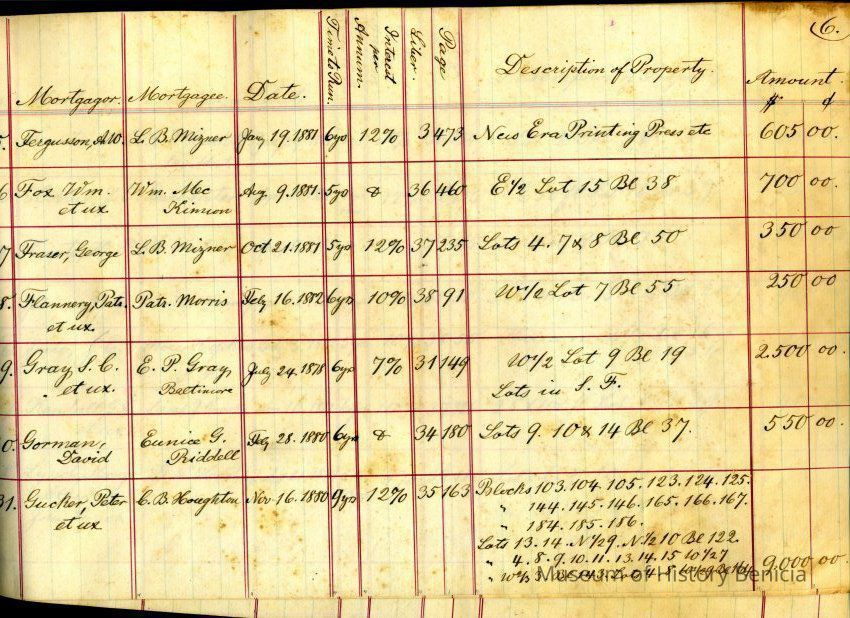 (6.
Mortgagor. Mortgagee. Date. Time to Run. Interest per Annum. Liber. Page Description of Property. Amount.
$ ¢
Fergusson, A.W. L. B. Mizner Jany 19. 1881 6yo 12% 3 473 New Era Printing Press etc 605 00.
6 Fox Wm. Wm. Mc Aug. 9. 1881. 5yo & 36 460 E½ Lot 15 Bl 38 700 00.
et ux. Kinnon
7 Fraser, George L. B. Mizner Oct 21. 1881 5yo 12% 37 235 Lots 4. 7 & 8 Bl 50 350 00
8. Flannery, Patr. Patr. Morris Feby 16. 1882 6yo 10% 38 91 W½ Lot 7 Bl 55 250 00
et ux.
9. Gray, S. C. E. P. Gray, July 24. 1878 6yo 7% 31 149 W½ Lot 9 Bl 19 2.500 00.
et ux. Baltimore Lots in S. F.
0. Gorman, Eunice G. Feby 28. 1880 6yo & 34 180 Lots 9. 10 & 14 Bl 37. 550 00.
David Riddell
31. Gucker, Peter C. B. Houghton Nov 16. 1880 9yo 12% 35 163 Blocks 103. 104. 105. 123. 124. 125.
et ux " 144. 145. 146. 165. 166. 167.
" 184. 185. 186.
Lots 13. 14. N½ 9. N½ 10 Bl 122.
" 4. 8. 9. 10. 11. 13. 14. 15 10 ½ 7
" W½ 3 9,000 00.
Museum of History Benicia